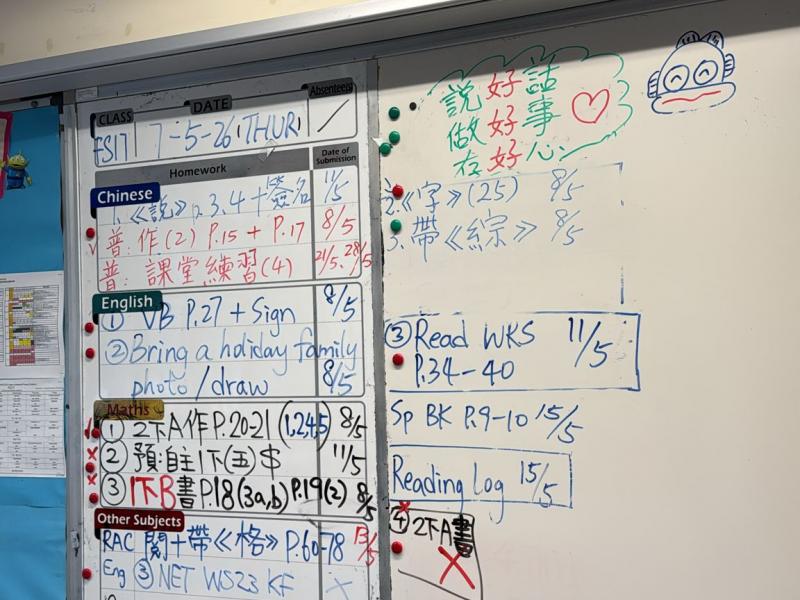 CLASS DATE Absentees
7-5-26 (THUR) /
Homework Date of Submission
Chinese
1.《說》p.3.4+簽名 11/5
普:作(2) P.15 + P.17 8/5
普:課堂練習(4) 21/5. 28/5
English
① VB P.27 + Sign 8/5
② Bring a holiday family
photo/draw 8/5
Maths
① 2下A作P.20-21 (1,2,4,5) 8/5
② 預:自主1下(五)$ 11/5
③ 1下B書P.18(3a,b) P.19(2) 8/5
Other Subjects
RAC 閱+帶《格》P.60-78 13/5
Eng ③ NET WS23 KF X
說好話
做好事
存好心
2.《字》(25) 8/5
3.帶《綜》 8/5
③ Read WKS 11/5
P.34-40
Sp BK P.9-10 15/5
Reading Log 15/5
④ 2下A書